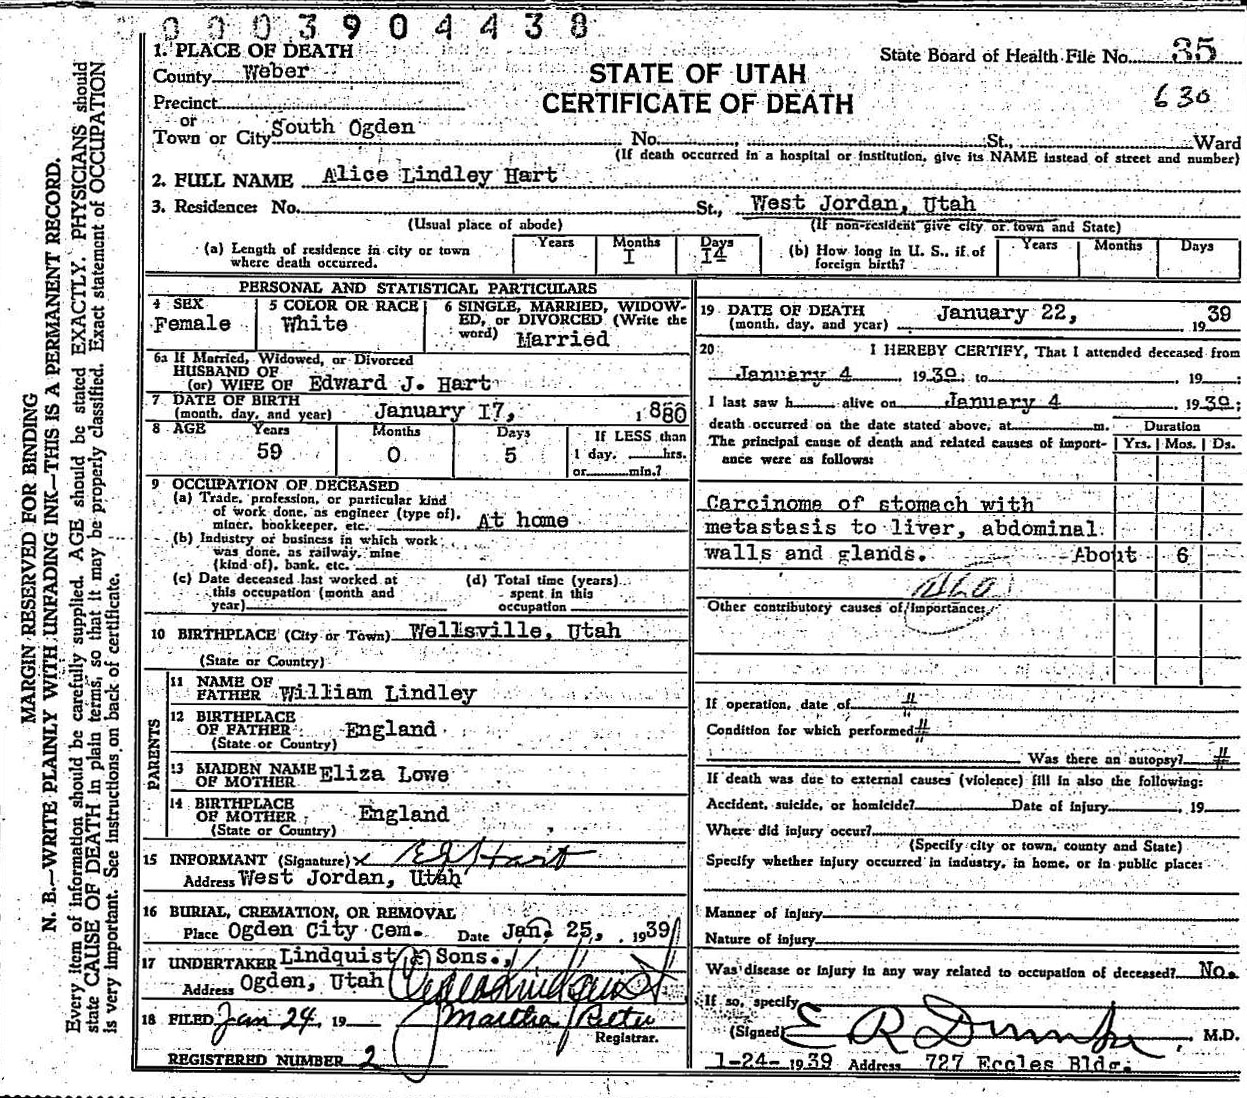 0003904438
1. PLACE OF DEATH
County Weber
State Board of Health File No. 35
STATE OF UTAH
630
CERTIFICATE OF DEATH
Precinct
or
Town or City South Ogden No. St., Ward
(If death occurred in a hospital or institution, give its NAME instead of street and number)
2. FULL NAME Alice Lindley Hart
3. Residence: No. St., West Jordan, Utah
(Usual place of abode) (If non-resident give city or town and State)
(a) Length of residence in city or town where death occurred. Years Months I Days I4 (b) How long in U. S., if of foreign birth? Years Months Days
PERSONAL AND STATISTICAL PARTICULARS
4 SEX
Female
5 COLOR OR RACE
White
6 SINGLE, MARRIED, WIDOW-
ED, or DIVORCED (Write the
word) Married
6a If Married, Widowed, or Divorced
HUSBAND OF
(or) WIFE OF Edward J. Hart
7 DATE OF BIRTH
(month, day, and year) January I7, 1880
8 AGE Years Months Days If LESS than
59 0 5 1 day, hrs.
or min.?
9 OCCUPATION OF DECEASED
(a) Trade, profession, or particular kind
of work done, as engineer (type of),
miner, bookkeeper, etc. At home
(b) Industry or business in which work
was done, as railway, mine
(kind of), bank, etc.
(c) Date deceased last worked at
this occupation (month and
year)
(d) Total time (years)
spent in this
occupation
10 BIRTHPLACE (City or Town) Wellsville, Utah
(State or Country)
PARENTS
11 NAME OF
FATHER William Lindley
12 BIRTHPLACE
OF FATHER England
(State or Country)
13 MAIDEN NAME
OF MOTHER Eliza Lowe
14 BIRTHPLACE
OF MOTHER England
(State or Country)
15 INFORMANT (Signature) x E J Hart
Address West Jordan, Utah
16 BURIAL, CREMATION, OR REMOVAL
Place Ogden City Cem. Date Jan. 25, 1939
17 UNDERTAKER Lindquist & Sons.,
Address Ogden, Utah
18 FILED Jan 24, 19
Martha
Registrar.
REGISTERED NUMBER 2
19 DATE OF DEATH
(month, day, and year) January 22, 1939
20 I HEREBY CERTIFY, That I attended deceased from
January 4, 1939, to 19 ;
I last saw h alive on January 4 1939;
death occurred on the date stated above, at m. Duration
The principal cause of death and related causes of import- Yrs. Mos. Ds.
ance were as follows:
Carcinome of stomach with
metastasis to liver, abdominal
walls and glands. -About 6
Other contributory causes of importance:
If operation, date of #
Condition for which performed #
Was there an autopsy? #
If death was due to external causes (violence) fill in also the following:
Accident, suicide, or homicide? Date of injury , 19
Where did injury occur?
(Specify city or town, county and State)
Specify whether injury occurred in industry, in home, or in public place:
Manner of injury
Nature of injury
Was disease or injury in any way related to occupation of deceased? No.
If so, specify
(Signed) E R Dumke, M.D.
1-24-1939 Address 727 Eccles Bldg.
MARGIN RESERVED FOR BINDING
N. B.—WRITE PLAINLY WITH UNFADING INK—THIS IS A PERMANENT RECORD.
Every item of information should be carefully supplied. AGE should be stated EXACTLY. PHYSICIANS should
state CAUSE OF DEATH in plain terms, so that it may be properly classified. Exact statement of OCCUPATION
is very important. See instructions on back of certificate.